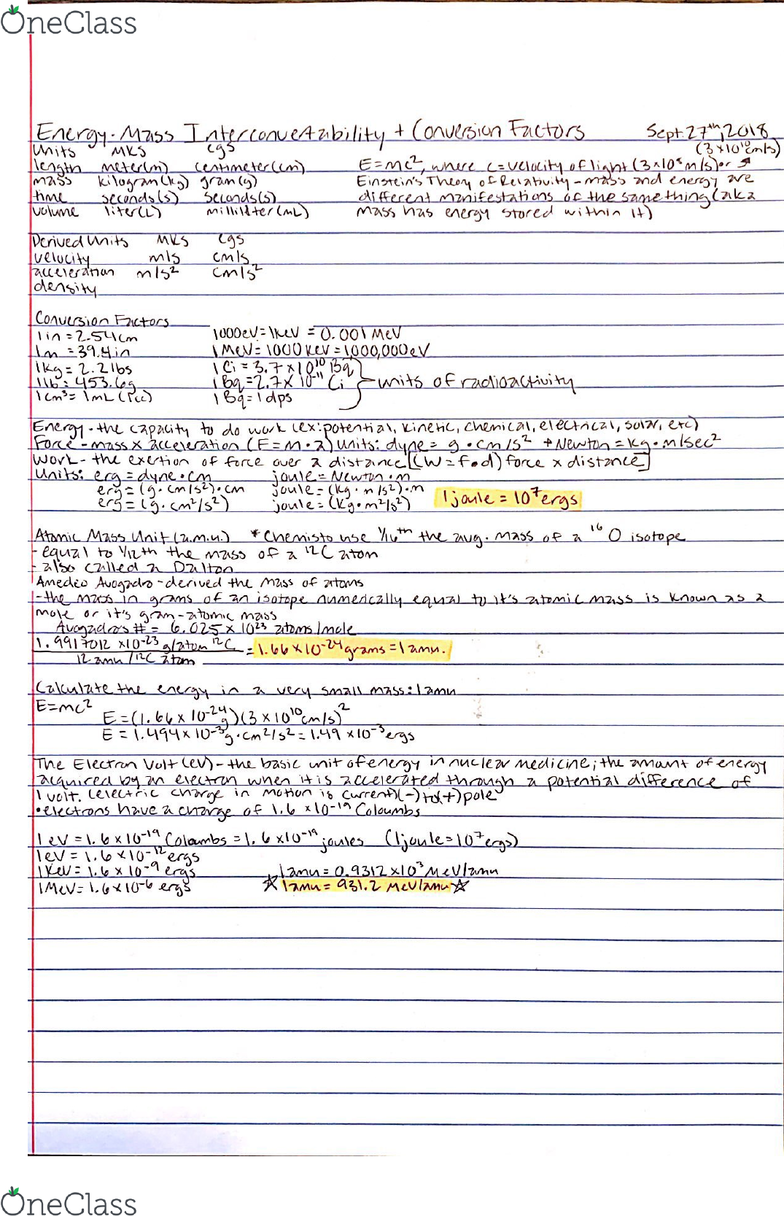 OneClass
Energy-Mass Interconvertability + Conversion Factors Sept. 27th, 2018
Units MKS cgs (3x10¹⁰cm/s)
length meter(m) centimeter(cm) E=mc², where c=velocity of light (3x10⁸m/s) or
mass kilogram(kg) gram(g) Einstein's Theory of Relativity - mass and energy are
time seconds(s) seconds(s) different manifestations of the same thing (aka
volume liter(L) milliliter(mL) mass has energy stored within it)
Derived Units MKS cgs
velocity m/s cm/s
acceleration m/s² cm/s²
density
Conversion Factors
1in=2.54cm 1000eV=1KeV = 0.001MeV
1m=39.4in 1MeV=1000KeV=1000,000eV
1kg=2.2lbs 1Ci=3.7x10¹⁰Bq
1lb=453.6g 1Bq=2.7x10⁻¹¹Ci units of radioactivity
1cm³=1mL(1cc) 1Bq=1dps
Energy-the capacity to do work (ex: potential, kinetic, chemical, electrical, solar, etc)
Force-mass x acceleration (F=m·a) Units: dyne= g·cm/s² + Newton=kg·m/sec²
Work-the exertion of force over a distance [(W=f·d) force x distance]
Units: erg=dyne·cm joule=Newton·m
erg=(g·cm/s²)·cm joule=(kg·m/s²)·m
erg=(g·cm²/s²) joule=(kg·m²/s²) 1joule=10⁷ergs
Atomic Mass Unit (a.m.u.) *Chemists use 1/16th the avg. mass of a ¹⁶O isotope
-equal to 1/12th the mass of a ¹²C atom
-also called a Dalton
Amedeo Avogadro-derived the mass of atoms
-the mass in grams of an isotope numerically equal to it's atomic mass is known as a
mole or it's gram-atomic mass
Avogadro's # = 6.025 x 10²³ atoms/mole
1.9917012 x10⁻²³ g/atom ¹²C = 1.66x10⁻²⁴grams=1amu.
12 amu/¹²C atom
Calculate the energy in a very small mass: 1amu
E=mc²
E=(1.66x10⁻²⁴g)(3x10¹⁰cm/s)²
E=1.494x10⁻³g·cm²/s²=1.49x10⁻³ergs
The Electron Volt (eV)-the basic unit of energy in nuclear medicine; the amount of energy
acquired by an electron when it is accelerated through a potential difference of
1 volt. (electric charge in motion is current) (-) to (+) pole
•electrons have a charge of 1.6 x10⁻¹⁹ Coloumbs
1eV=1.6x10⁻¹⁹ Coloumbs=1.6x10⁻¹⁹ joules (1joule=10⁷ergs)
1eV=1.6x10⁻¹² ergs
1KeV=1.6x10⁻⁹ ergs 1amu=0.9312x10³MeV/amu
1MeV=1.6x10⁻⁶ ergs ☆1amu=931.2 MeV/amu☆
OneClass